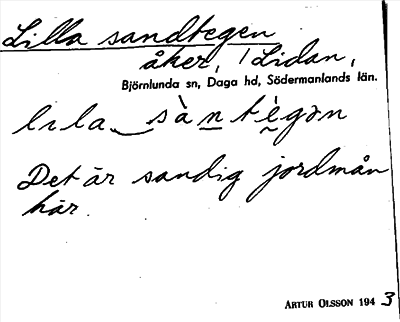 Lilla sandtegen
åker, / Lidan,
Björnlunda sn, Daga hd, Södermanlands län.
lɩla sàntégən
Det är sandig jordmån
här.
ARTUR OLSSON 1943